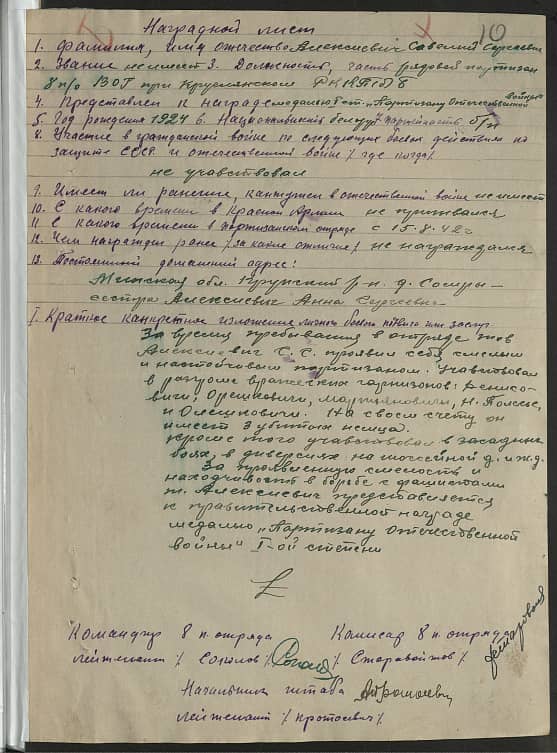 10
Наградной лист
1. Фамилия, имя отчество Алексиевич Савелий Сергеевич
2. Звание не имеет 3. Должность, часть рядовой партизан
8 п/о ВОГ при Круглянском РК КП(б)Б
4. Представлен к награде медалью I ст. „Партизану Отечественной войны"
5. Год рождения 1924 6. Национальность белорус 7. партийность б/п
8. Участие в гражданской войне по следующим боевым действиям по
защите СССР и отечественной войне /где когда/
не учавствовал
9. Имеет ли ранение, контужен в отечественной войне не имеет
10. С какого времени в Красной Армии не призывался
11 С какого времени в партизанском отряде с 15.8.42г
12. Чем награжден ранее /за какие отличие/ не награждался
13. Постоянный домашний адрес:
Минская обл. Крупский р-н. д.
сестра Алексиевич Анна Сергеевна
I. Краткое конкретное изложение личного боевого подвига или заслуг
За время пребывания в отряде тов
Алексиевич С. С. проявил себя смелым
и настойчивым партизаном. Учавствовал
в разгроме вражеских гарнизонов: Денисо-
вичи, Орешковичи, Мартьяновичи, Н. Полесье,
и Олешковичи. На своем счету он
имеет 3 убитых немца.
Кроме того учавствовал в засадных
боях, в диверсиях на шоссейной д. и ж.д.
За проявленную смелость и
находчивость в борьбе с фашистами
т. Алексиевич представляется
к правительственной награде
медалью „Партизану Отечественной
войны" I-ой степени
Командир 8 п. отряда Комисар 8 п. отряда
лейтенант / Соколов / / Старовойтов /
Начальник штаба
лейтенант / Кротоевич /